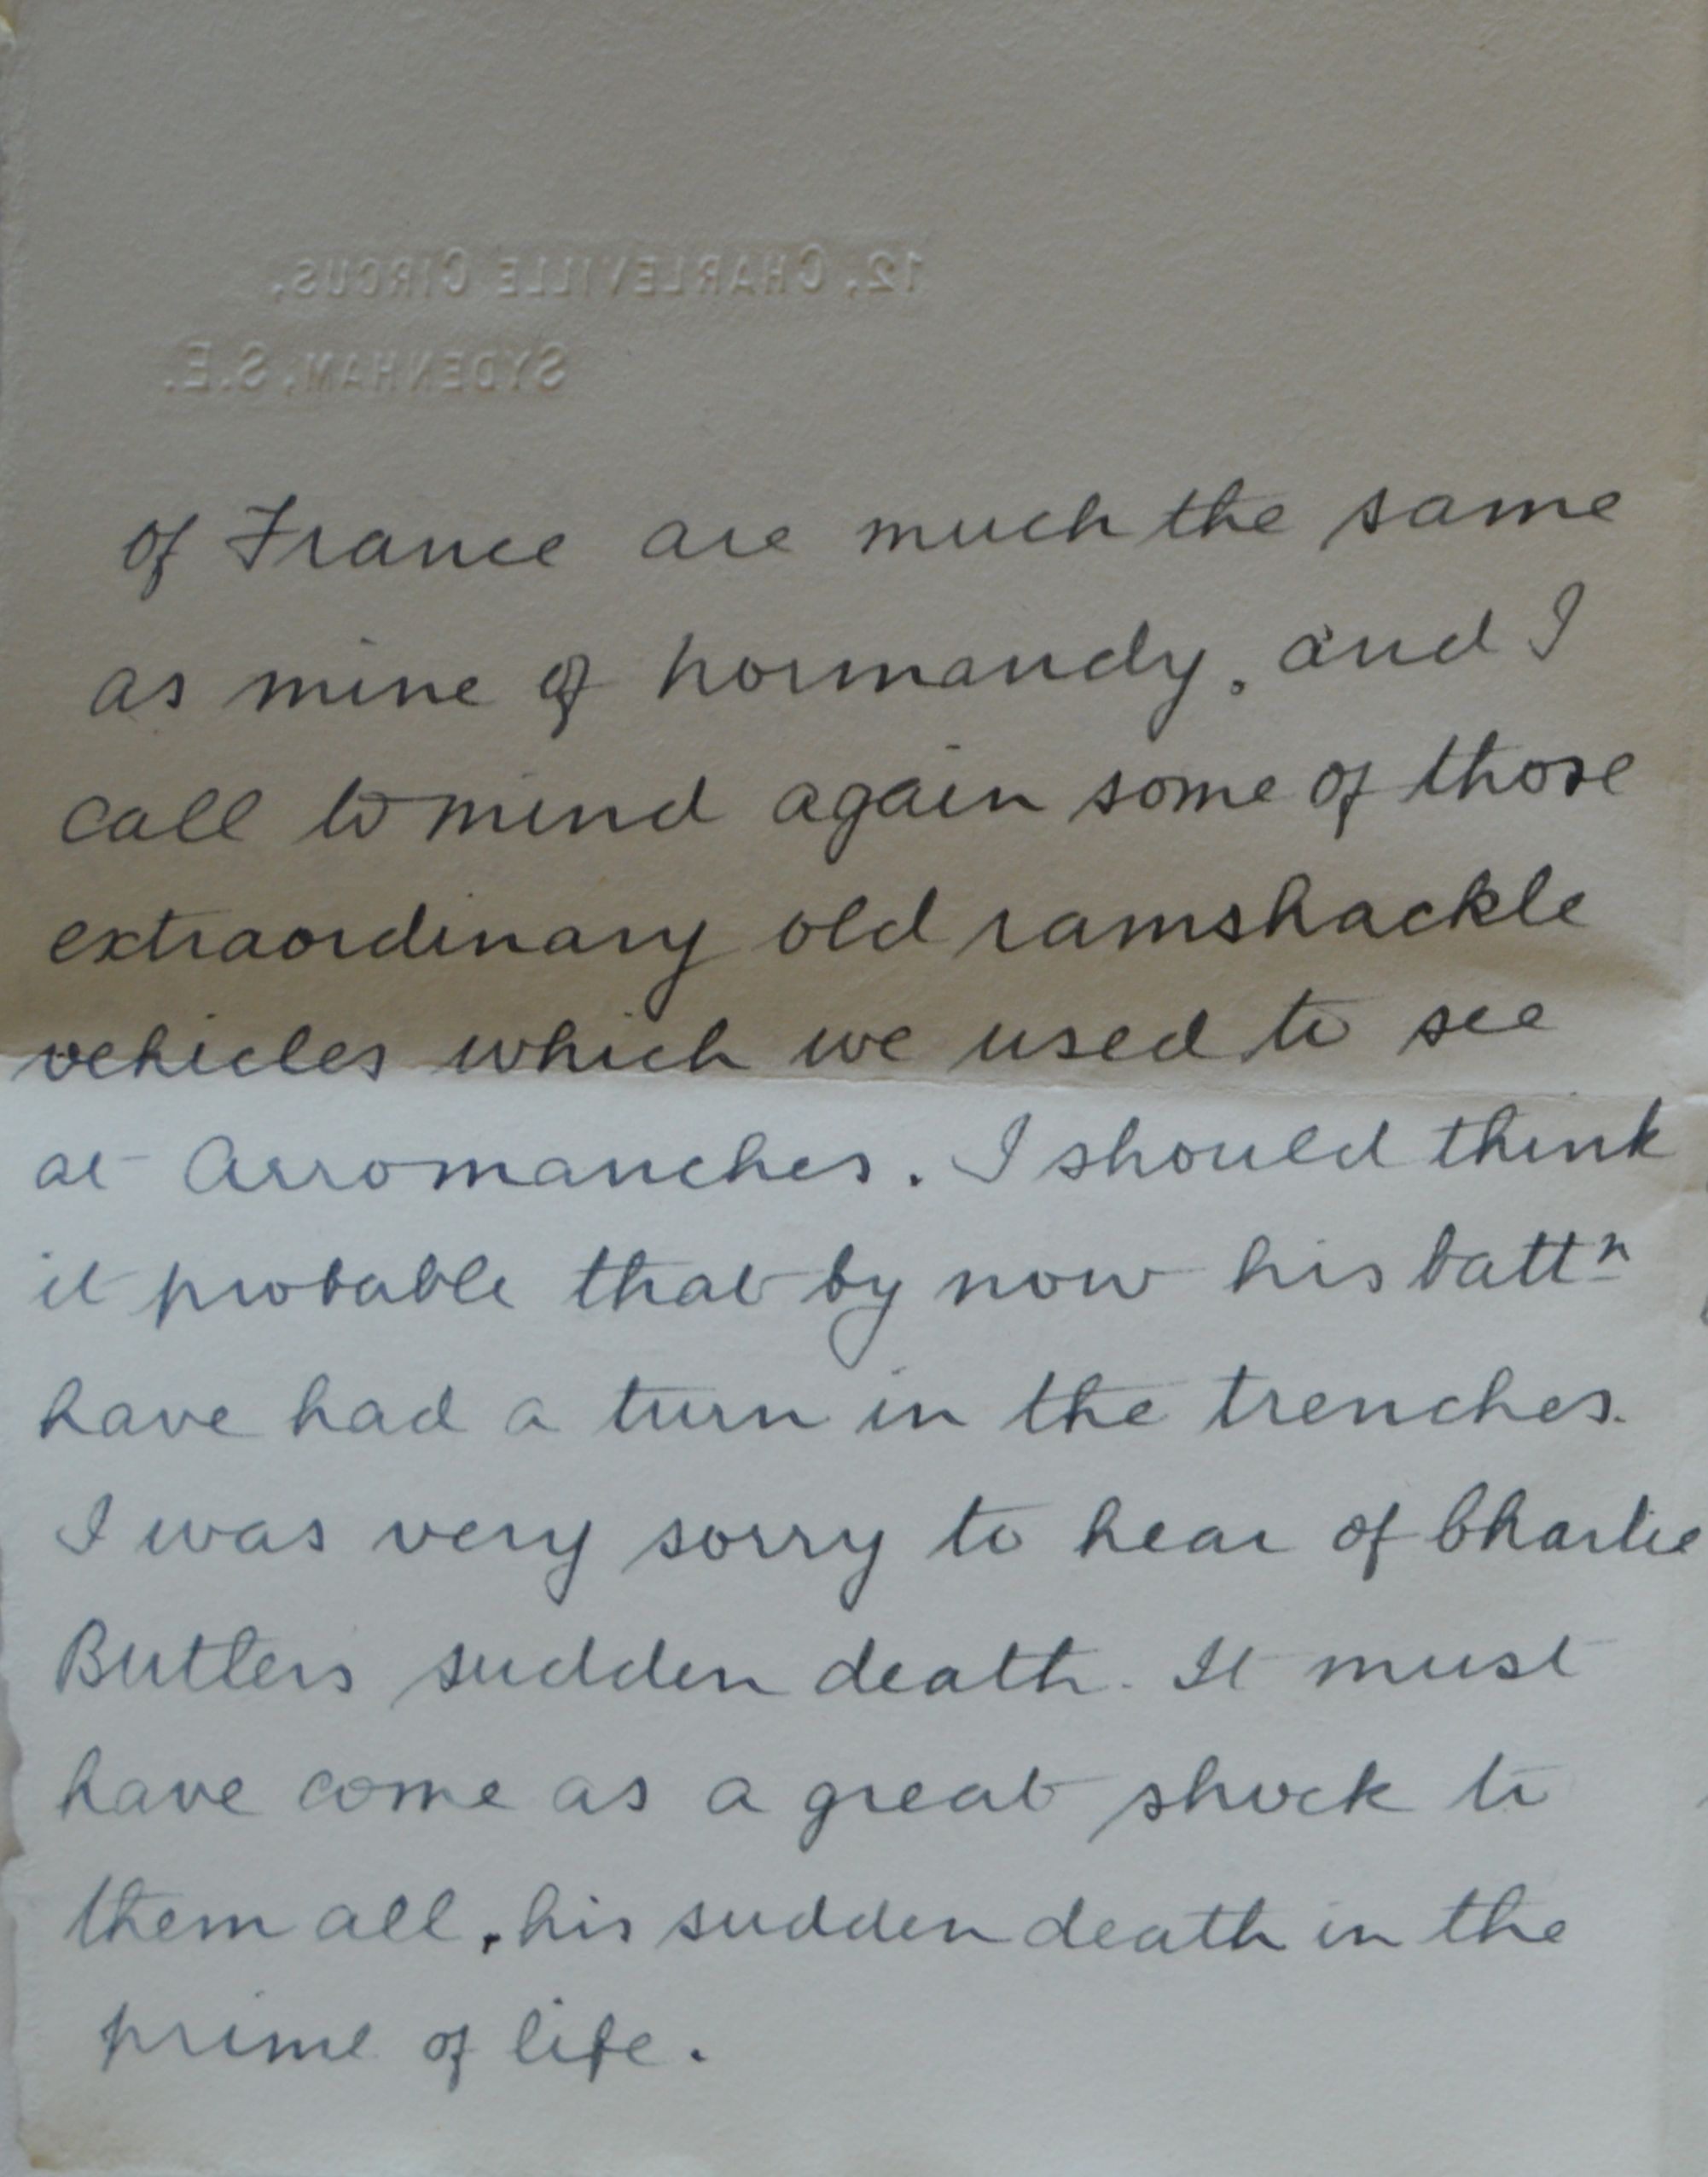 12, CHARLEVILLE CIRCUS,
SYDENHAM, S.E.
of France are much the same
as mine of Normandy, and I
call to mind again some of those
extraordinary old ramshackle
vehicles which we used to see
at Arromanches. I should think
it probable that by now his battn
have had a turn in the trenches.
I was very sorry to hear of Charlie
Butlers sudden death. It must
have come as a great shock to
them all, his sudden death in the
prime of life.